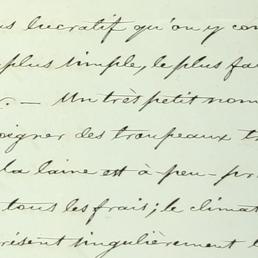 us lucratif qu'on y con
plus simple, le plus fa
r. — Un très petit nom
oigner des troupeaux t
la laine est à peu-pr
tous les frais; le climat
résent singulièrement